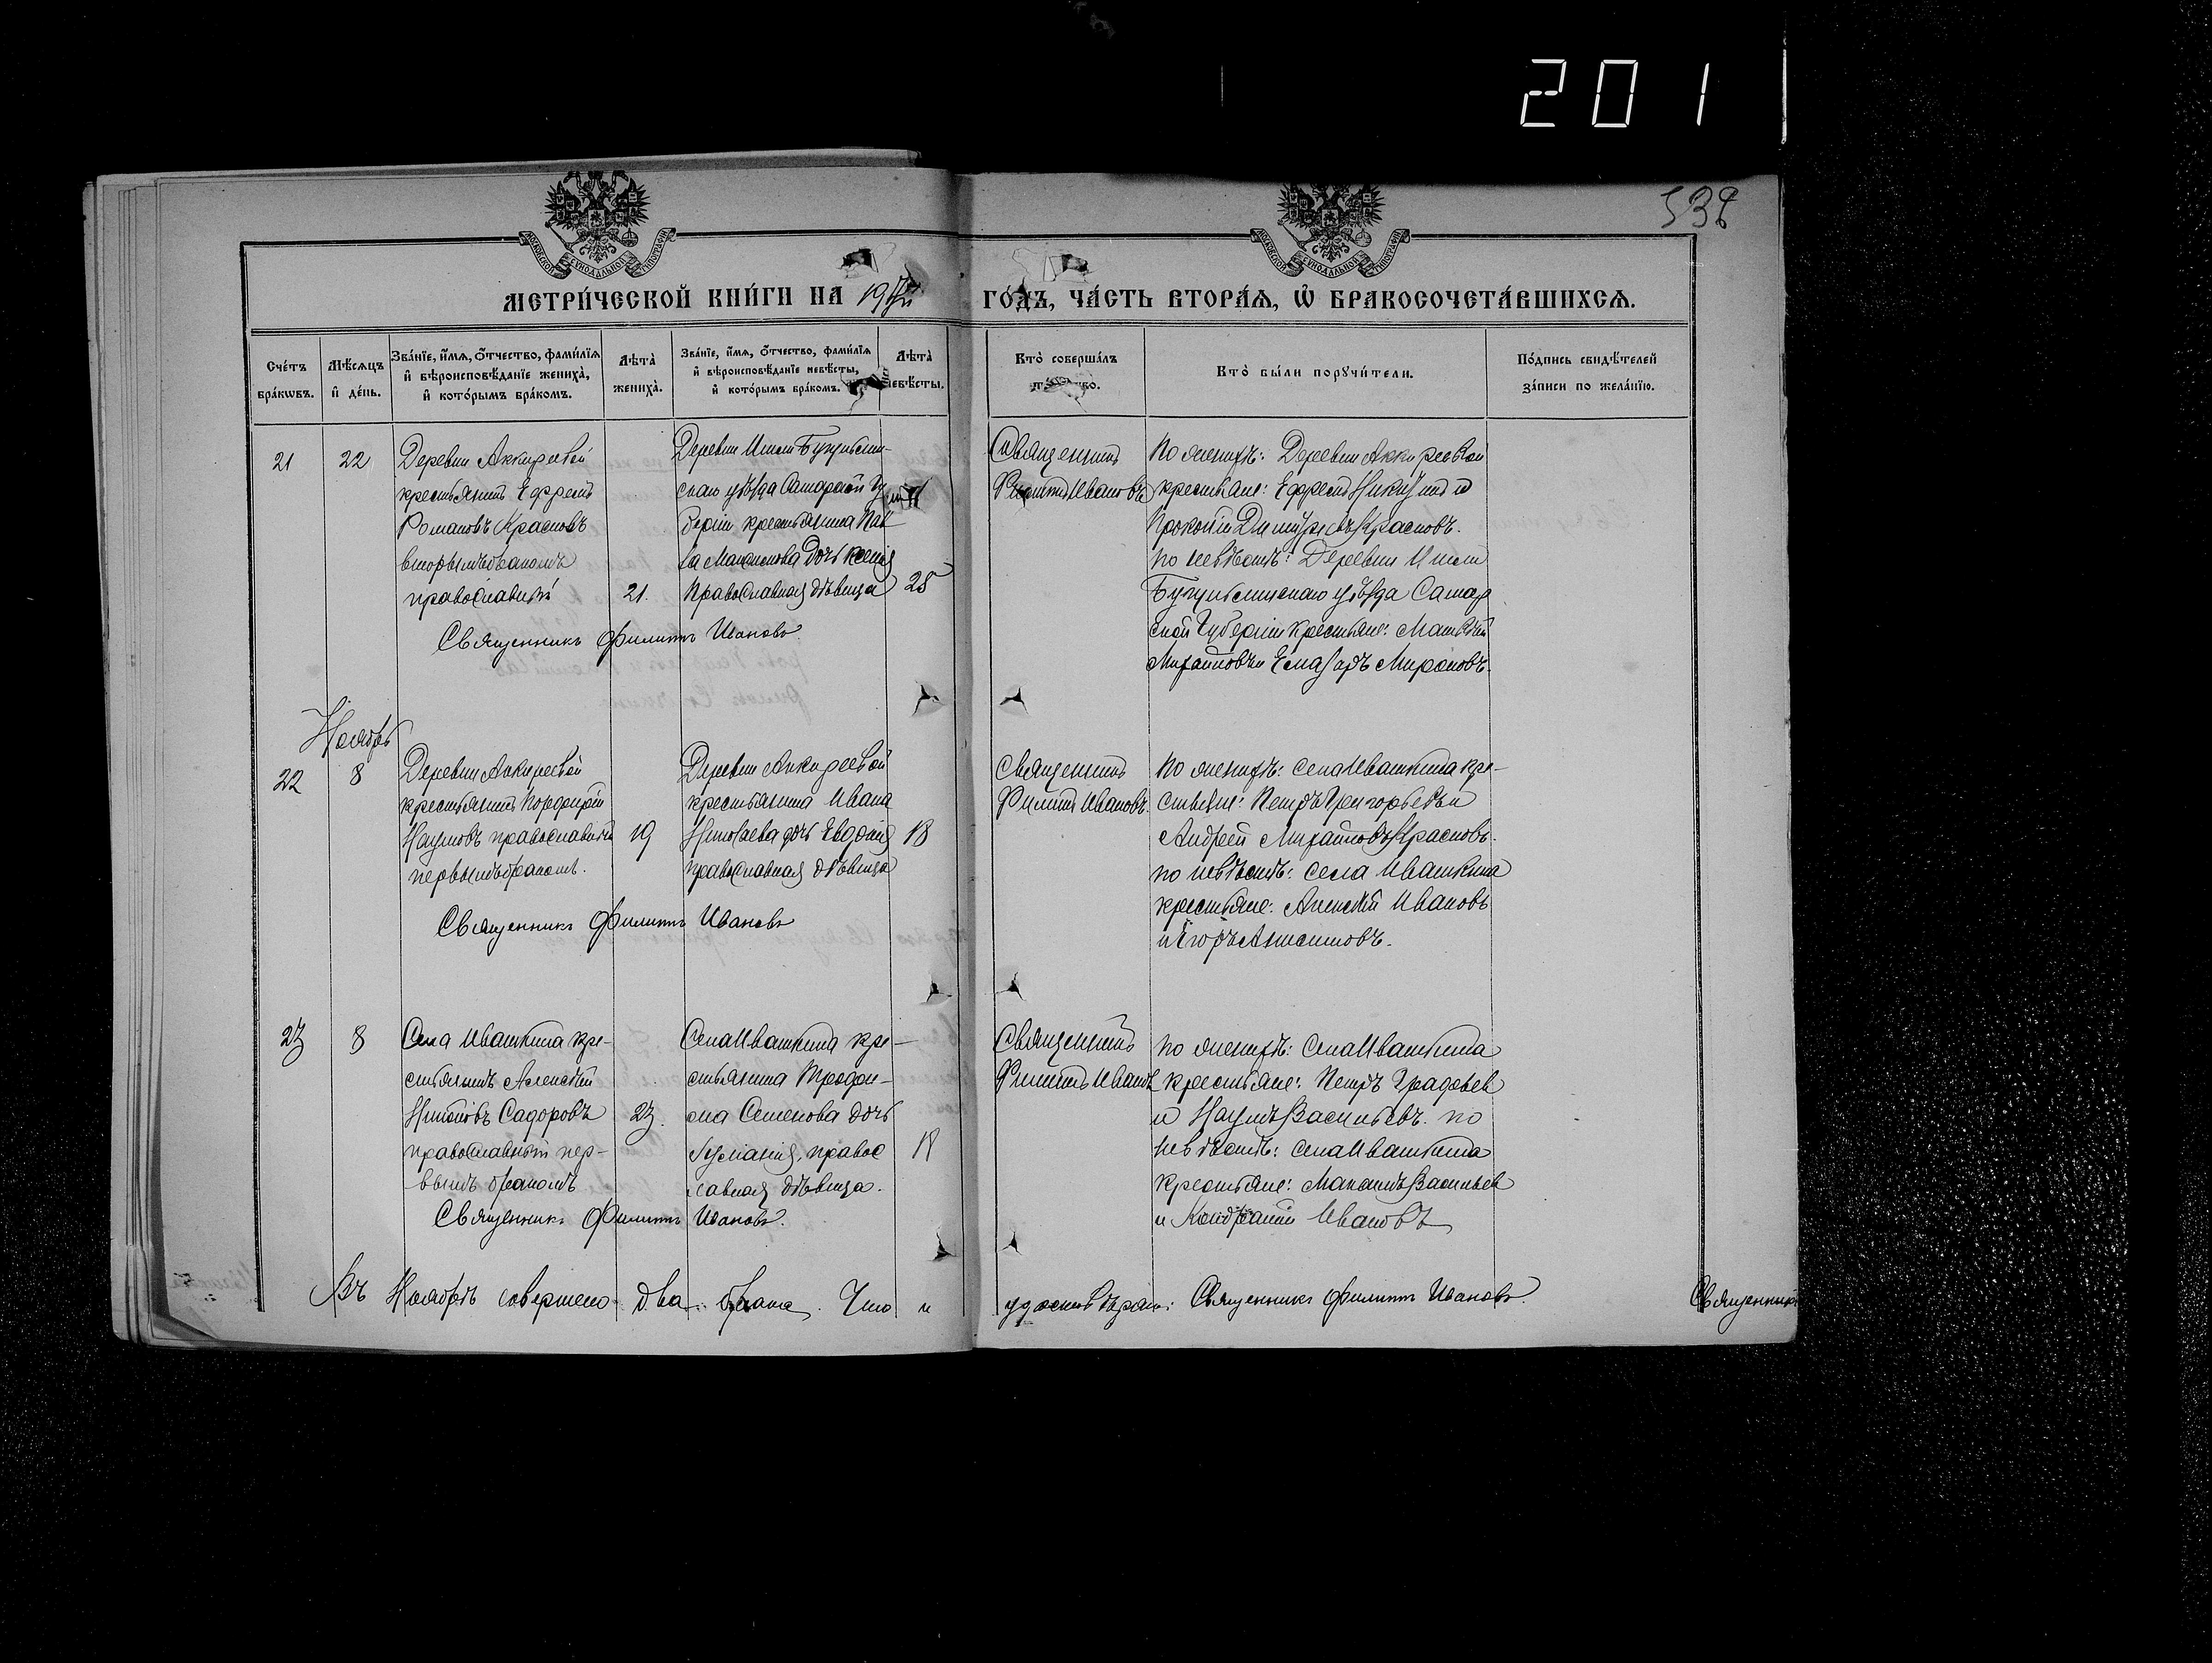 201
МОСКОВСКОЙ СѴНОДАЛЬНОЙ ТИПОГРАФІИ
МОСКОВСКОЙ СѴНОДАЛЬНОЙ ТИПОГРАФІИ
МЕТРИ́ЧЕСКОЙ КНИ́ГИ НА 19
ГО́ДЪ, ЧА́СТЬ ВТОРА́Ѧ, Ѽ БРАКОСОЧЕТА́ВШИХСѦ.
Сче́тъ бра́кѡвъ.
Мѣ́сѧцъ и҆ де́нь.
Зва́нїе, и҆́мѧ, ѻ҆́тчество, фами́лїѧ и҆ вѣроисповѣ́данїе жениха̀, и҆ кото́рымъ бра́комъ.
Лѣта̀ жениха̀.
Зва́нїе, и҆́мѧ, ѻ҆́тчество, фами́лїѧ и҆ вѣроисповѣ́данїе невѣ́сты, и҆ кото́рымъ бра́комъ.
Лѣта̀ невѣ́сты.
Кто̀ соверша́лъ
Кто̀ бы́ли порꙋчи́тели.
По́дпись свидѣ́телей за́писи по жела́нїю.
21
22
Деревни Аккиреевой
крестьянинъ Ефремъ
Романовъ Красновъ
вторымъ бракомъ
православный
21.
Деревни Ишли Бугульмин-
скаго уѣзда Самарской Гу
берніи крестьянина Пав
ла Максимова дочь Ксенія
православная дѣвица
25
Священникъ
Филиппъ Ивановъ
По женихѣ: Деревни Аккиреевой
крестьяне: Ефремъ и
Прокопій Димитріевъ Красновъ.
по невѣстѣ: Деревни Ишли
Бугульминскаго уѣзда Самар
ской Губерніи крестьяне: Матвѣй
Михайловъ и Елизаръ Мироновъ.
Священникъ Филиппъ Ивановъ
Ноябрь
22
8
Деревни Аккиреевой
крестьянинъ Порфирій
Наумовъ православный
первымъ бракомъ.
19
Деревни Аккиреевой
крестьянина Ивана
Николаева дочь Евдокія
православная дѣвица
18
Священникъ
Филиппъ Ивановъ.
По женихѣ: села Ивашкина кре-
стьяне: Петръ Григорьевъ и
Андрей Михайловъ Красновъ.
по невѣстѣ: села Ивашкина
крестьяне: Алексѣй Ивановъ
и Егоръ
Священникъ Филиппъ Ивановъ
23
8
Села Ивашкина кре-
стьянинъ Алексѣй
Садоровъ
православный пер-
вымъ бракомъ
23.
Села Ивашкина кре-
стьянина Трофи-
ма Семенова дочь
правос
лавная дѣвица.
18
Священникъ
Филиппъ Ивановъ
по женихѣ: села Ивашкина
крестьяне: Петръ
и Наумъ Васильевъ. по
невѣстѣ: села Ивашкина
крестьяне: Васильев
и Кондратій Ивановъ
Священникъ Филиппъ Ивановъ.
Въ Ноябрѣ совершено два брака. Что и
удостовѣряю: Священникъ Филиппъ Ивановъ.
Священникъ